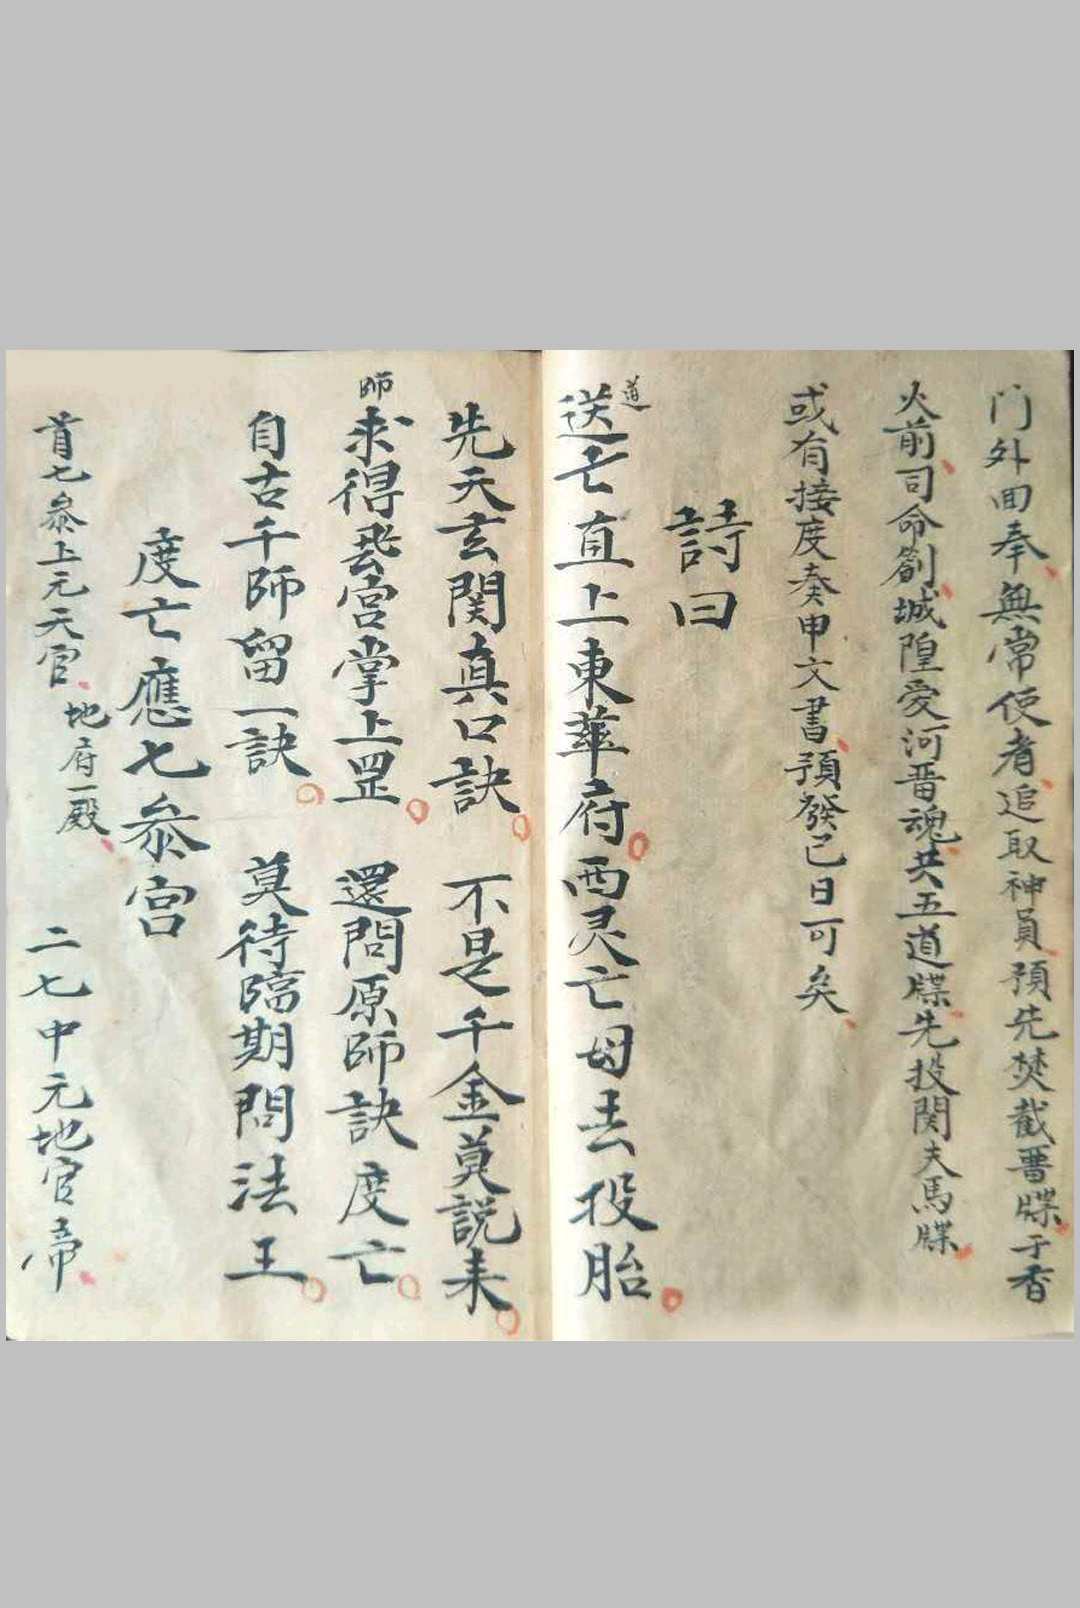 門外回奉無常使者追取神員預先焚截晋牒于香
火前司命劄城隍爱河晋魂共五道牒先投関夫馬牒
或有接度奏申文書預發已日可矣
詩曰
道
送亡直上東華府西灵亡母去投胎
先天玄関真口訣 不是千金莫説来
師
求得飛宮掌上罡 還問原師訣度亡
自古千師留一訣 莫待臨期問法王
度亡應七叅宮
首七叅上元天官地府一殿 二七中元地官帝